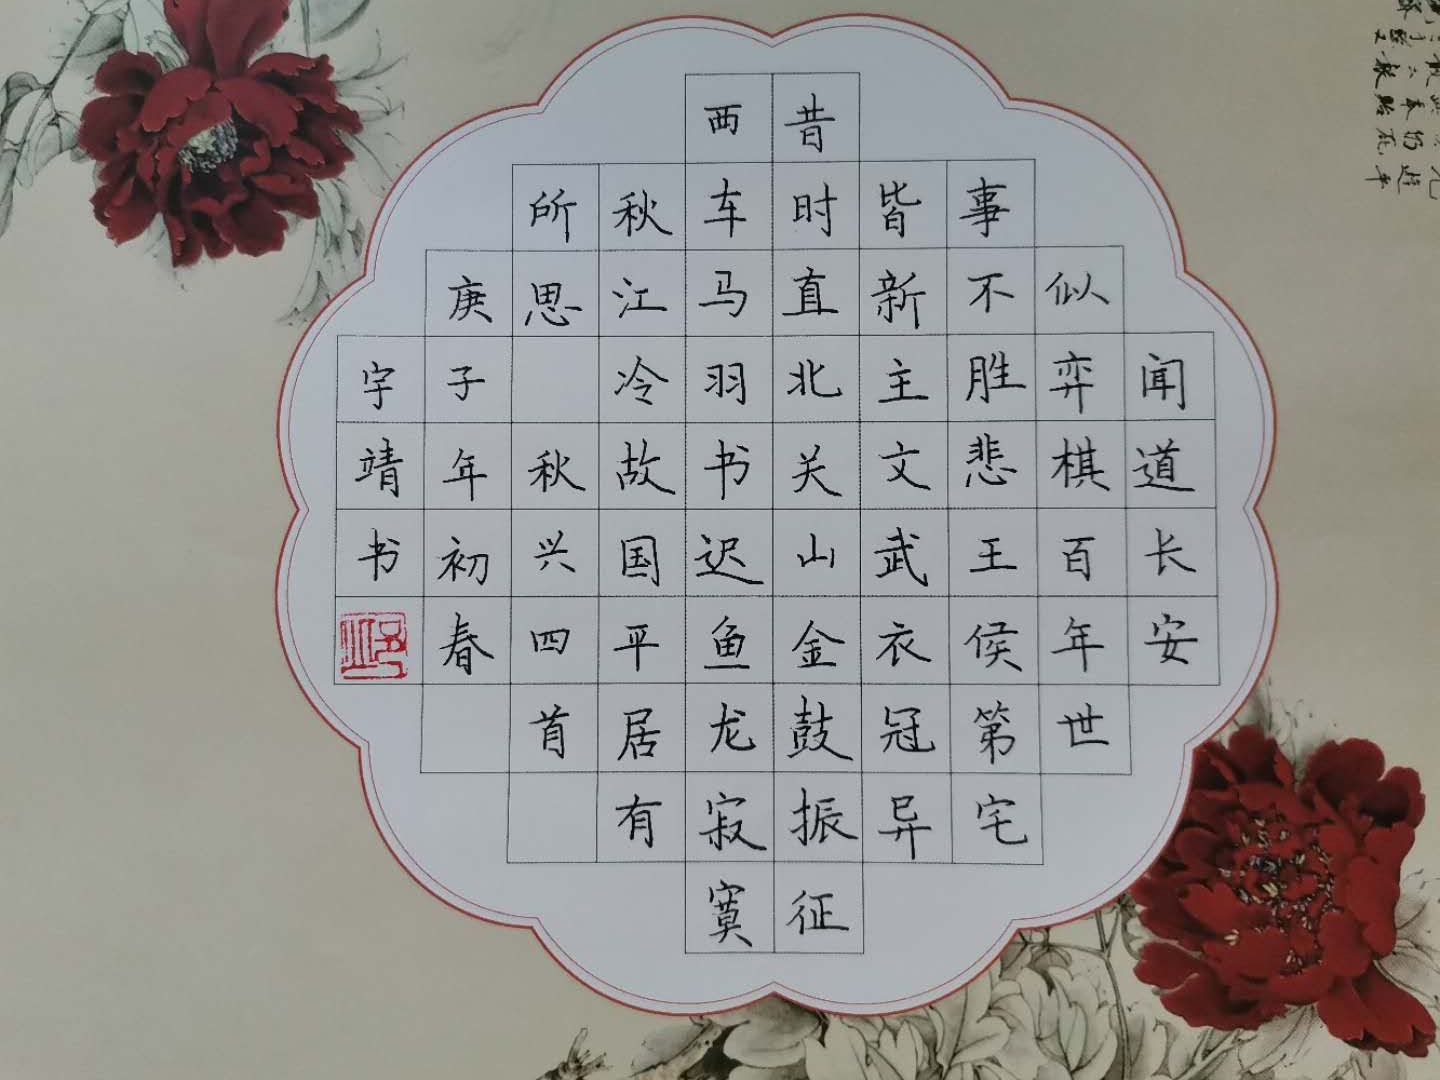 闻道长安
似弈棋百年世
事不胜悲王侯第宅
皆新主文武衣冠异
昔时直北关山金鼓振征
西车马羽书迟鱼龙寂寞
秋江冷故国平居有
所思 秋兴四首
庚子年初春
宇靖书